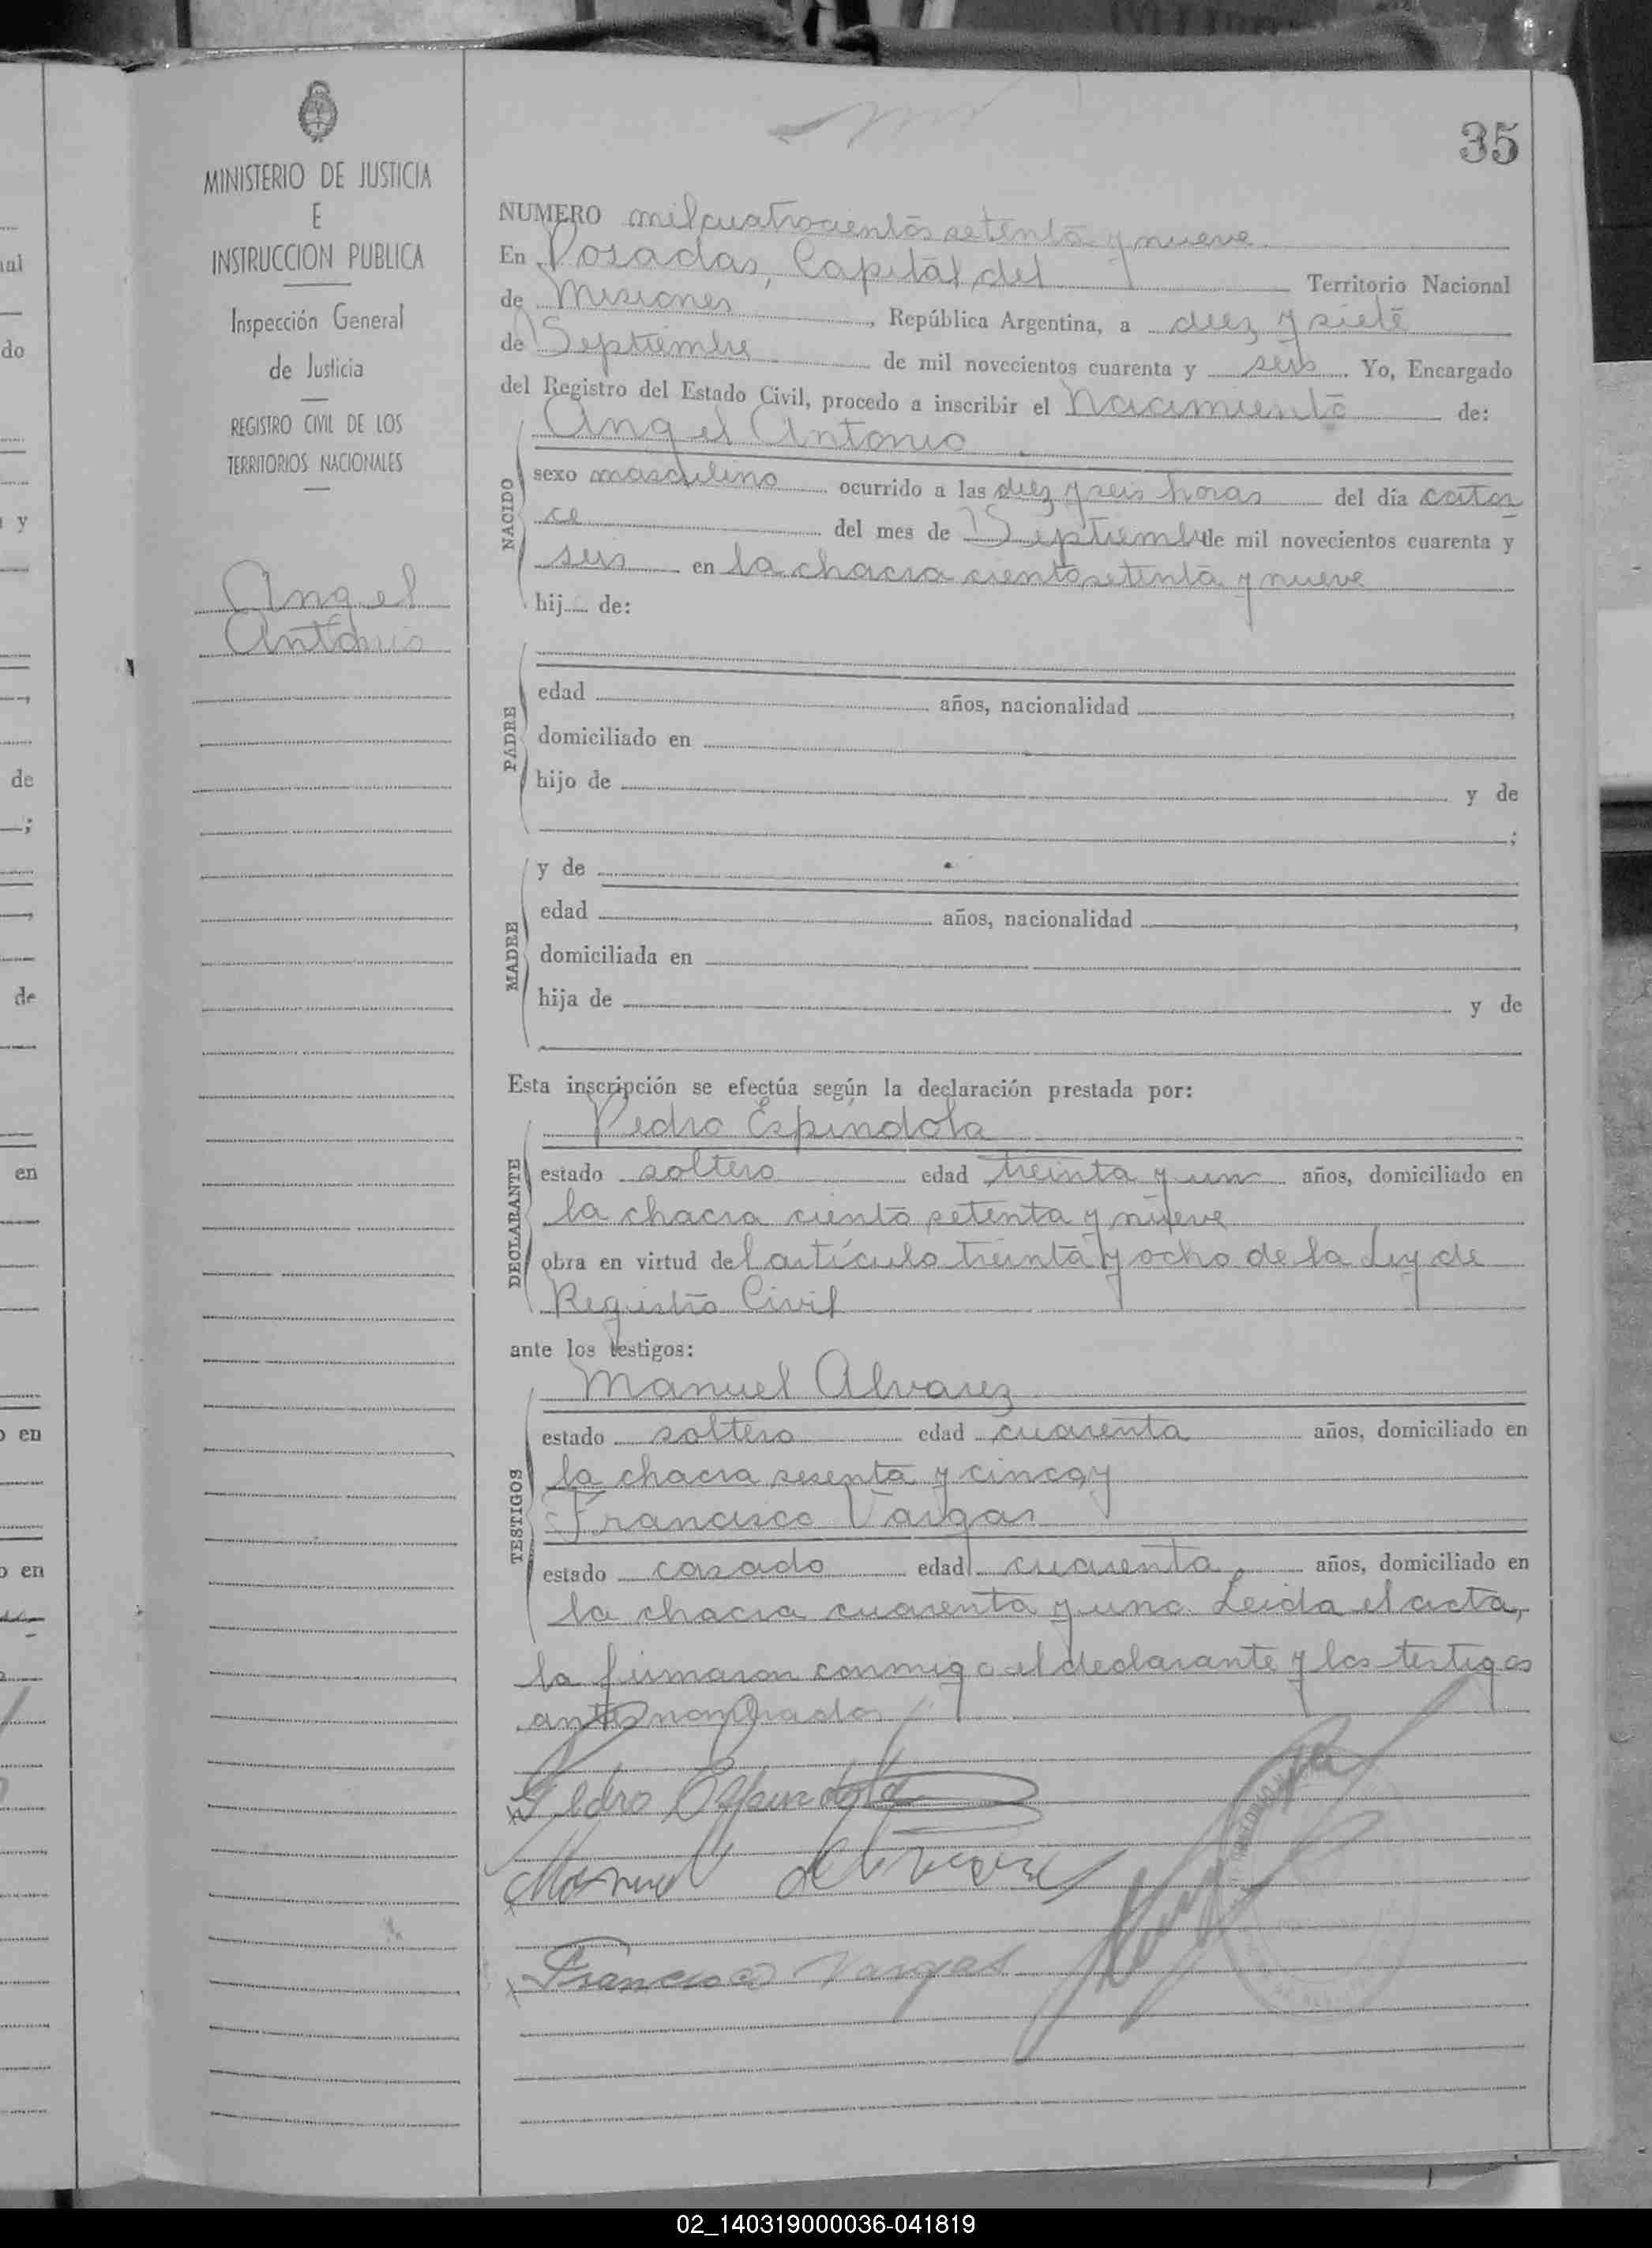 35
MINISTERIO DE JUSTICIA
E
INSTRUCCION PUBLICA
Inspección General
de Justicia
REGISTRO CIVIL DE LOS
TERRITORIOS NACIONALES
Angel
Antonio
NUMERO mil cuatrocientos setenta y nueve
En Posadas, Capital del Territorio Nacional
de Misiones, República Argentina, a diez y siete
de Septiembre de mil novecientos cuarenta y seis. Yo, Encargado
del Registro del Estado Civil, procedo a inscribir el Nacimiento de:
NACIDO
Angel Antonio
sexo masculino ocurrido a las diez y seis horas del día cator
ce del mes de Septiembre de mil novecientos cuarenta y
seis en la chacra ciento setenta y nueve
hij de:
PADRE
edad años, nacionalidad ,
domiciliado en
hijo de y de
;
MADRE
y de
edad años, nacionalidad ,
domiciliada en
hija de y de
Esta inscripción se efectúa según la declaración prestada por:
DECLARANTE
Pedro Espíndola
estado soltero edad treinta y un años, domiciliado en
la chacra ciento setenta y nueve
obra en virtud del artículo treinta y ocho de la Ley de
Registro Civil
ante los testigos:
TESTIGOS
Manuel Alvarez
estado soltero edad cuarenta años, domiciliado en
la chacra sesenta y cinco, y
Francisco Vargas
estado casado edad cuarenta años, domiciliado en
la chacra cuarenta y uno. Leida el acta,
la firmaron conmigo el declarante y los testigos
antes nombrados
Pedro Espindola
Manuel Alvarez
Francisco Vargas
al
do
y
de
;
de
en
en
en
02_140319000036-041819